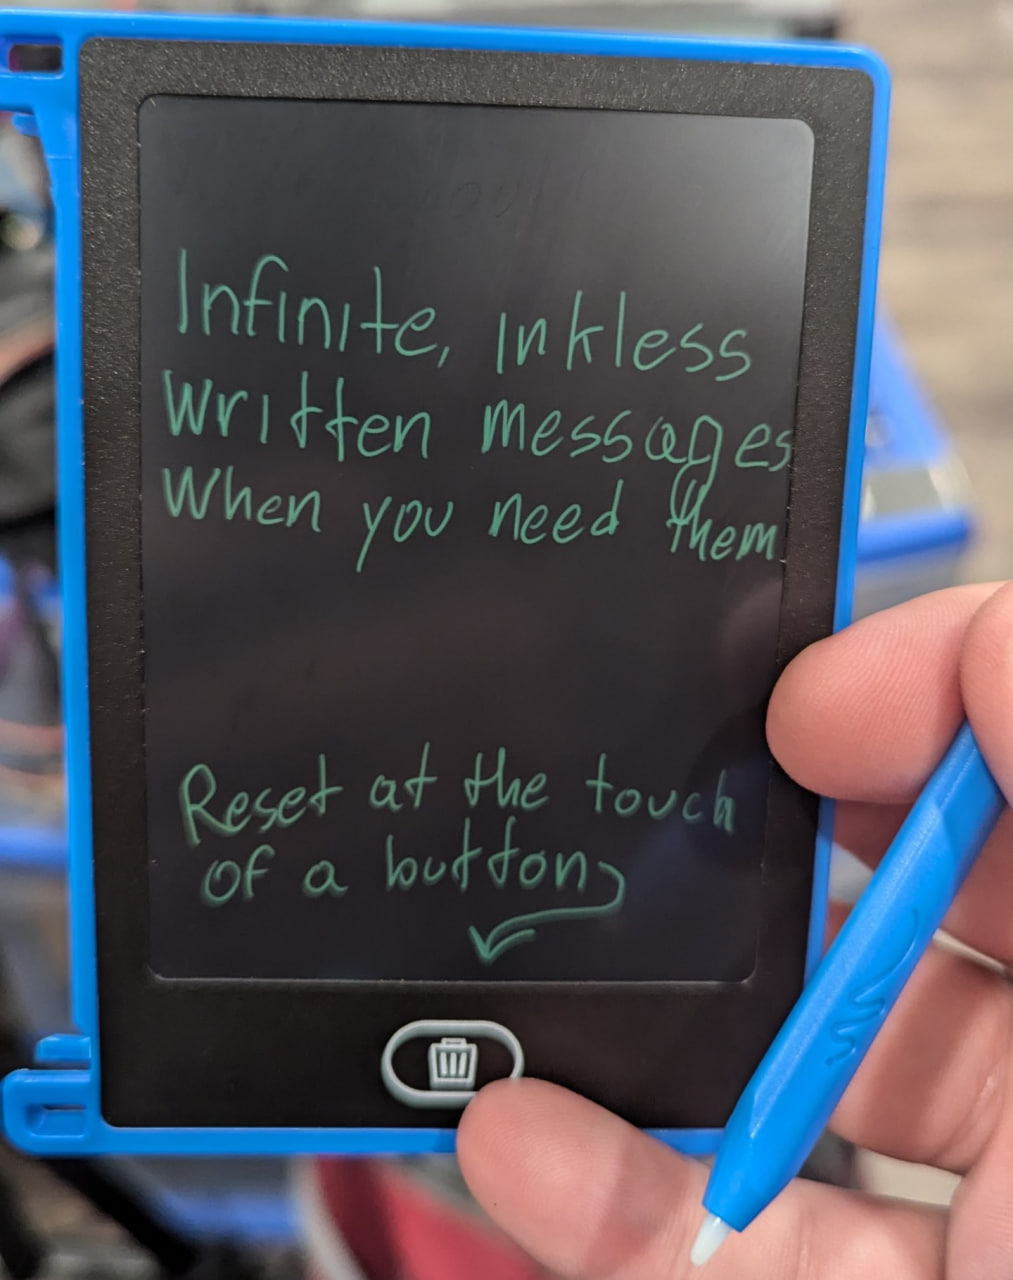 Infinite, inkless
written messages
when you need them
Reset at the touch
of a button